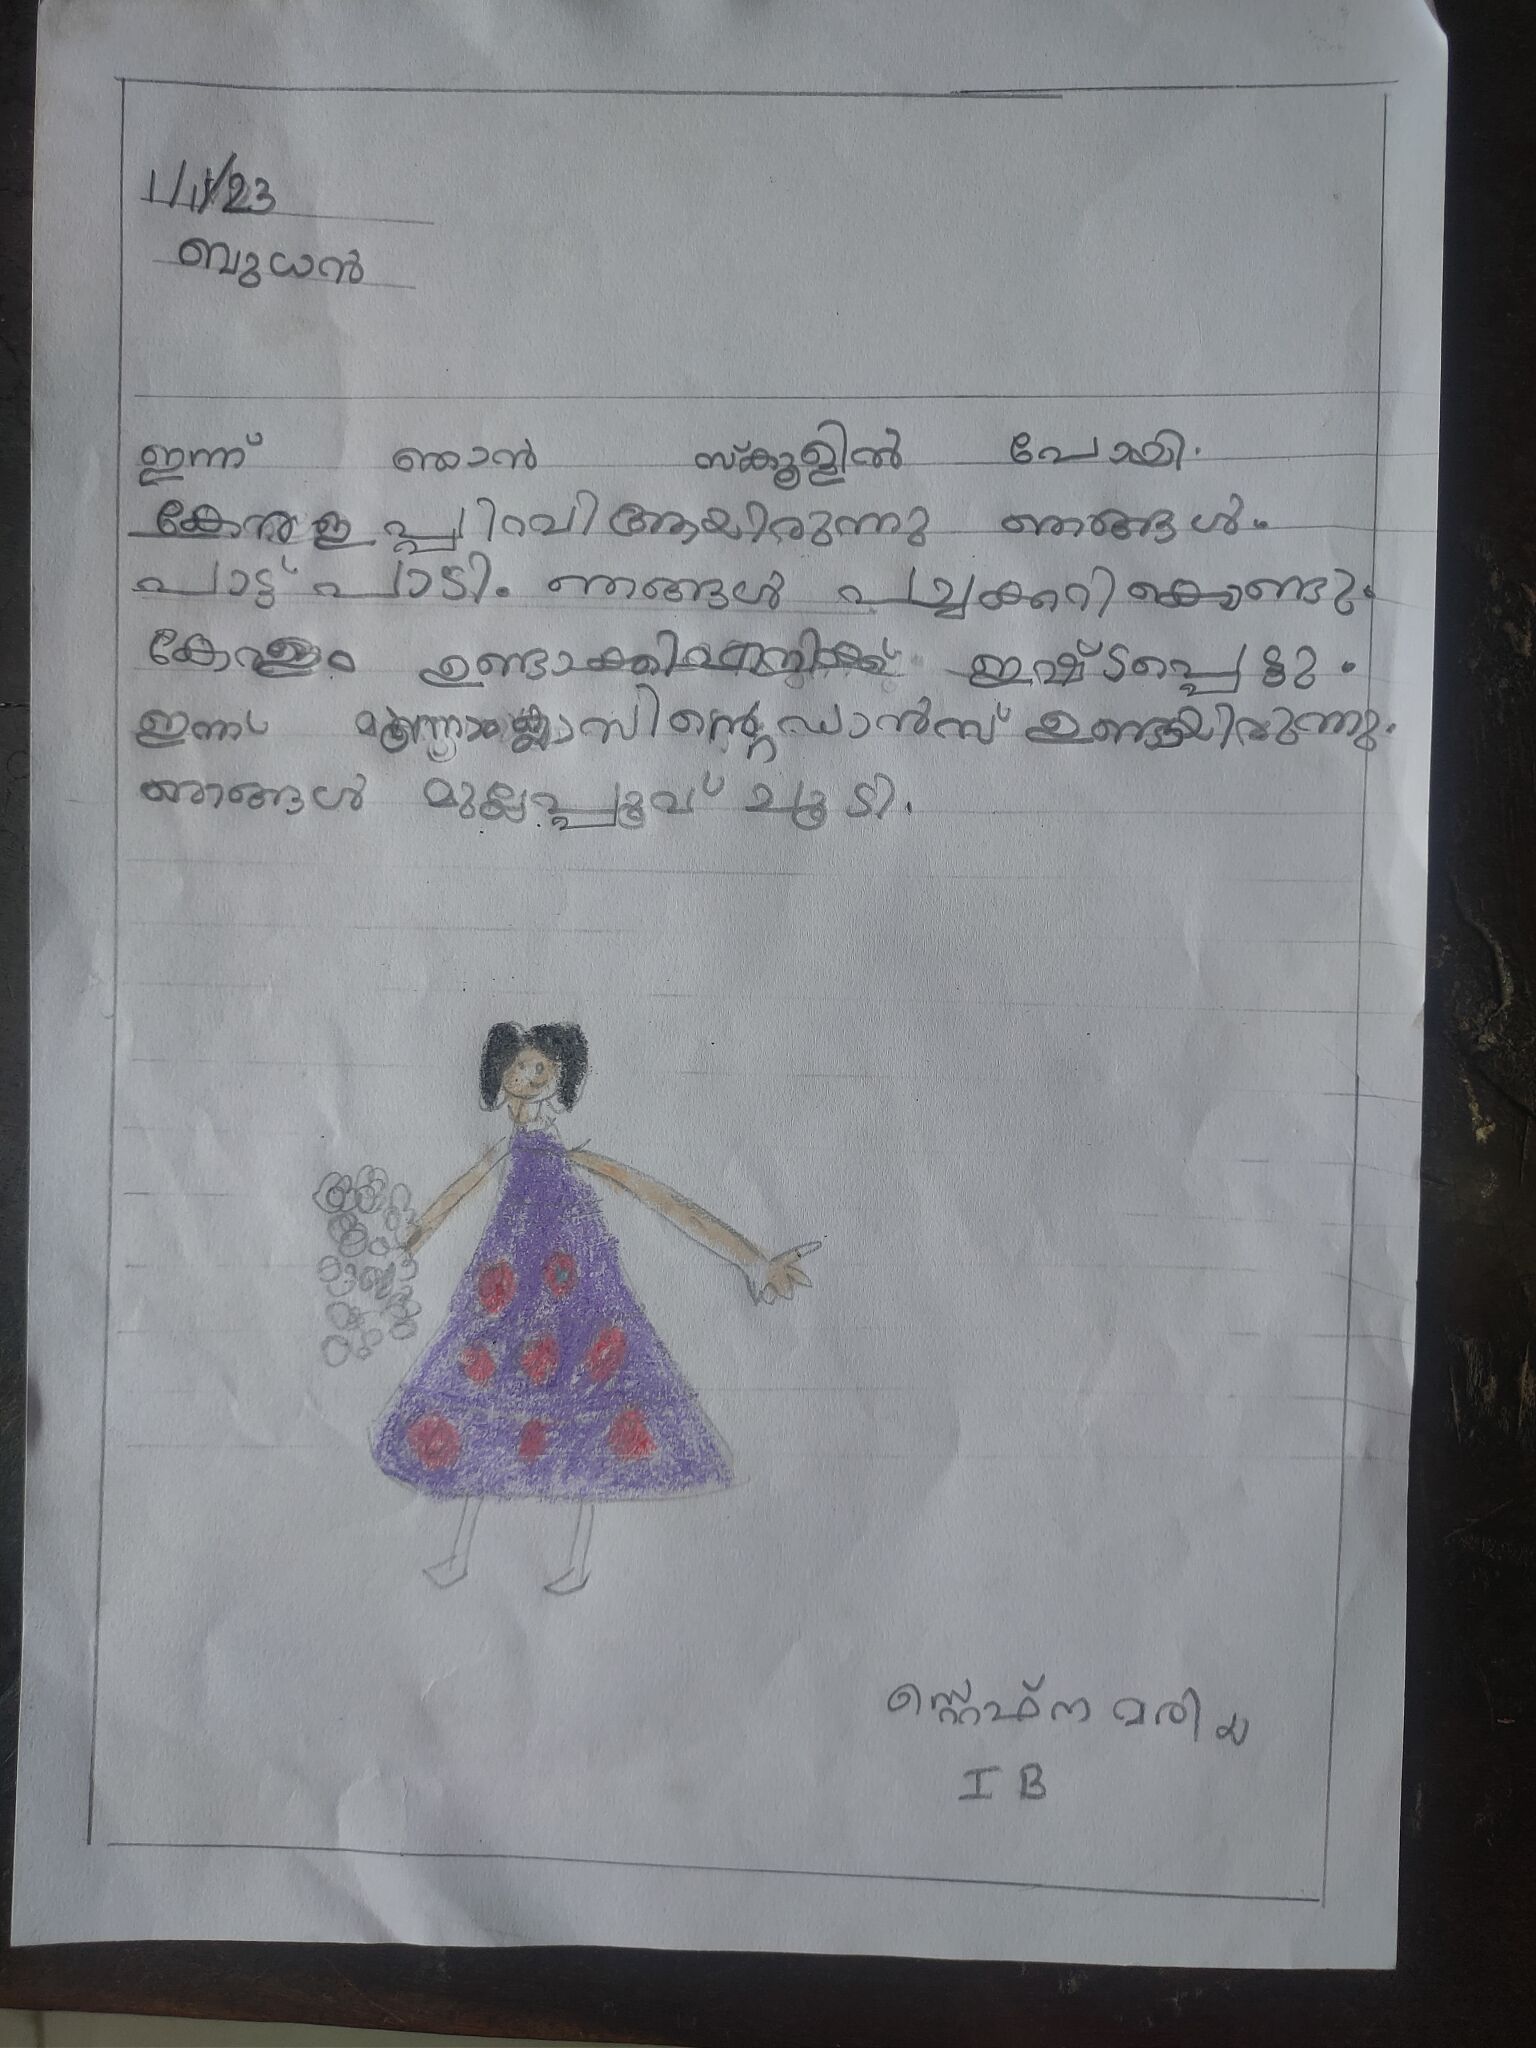 1/11/23
ബുധൻ
ഇന്ന് ഞാൻ സ്കൂളിൽ പോയി.
കേരളപ്പിറവി ആയിരുന്നു ഞങ്ങൾ.
പാട്ട് പാടി. ഞങ്ങൾ പച്ചക്കറി കൊണ്ടു.
കേരളം ഉണ്ടാക്കി എനിക്ക് ഇഷ്ടപ്പെട്ടു.
ഇന്ന് മൂന്നാം ക്ലാസിന്റെ ഡാൻസ് ഉണ്ടായിരുന്നു.
ഞങ്ങൾ മുല്ലപ്പൂവ് ചൂടി.
സ്റ്റെഫ്ന മരിയ
I B